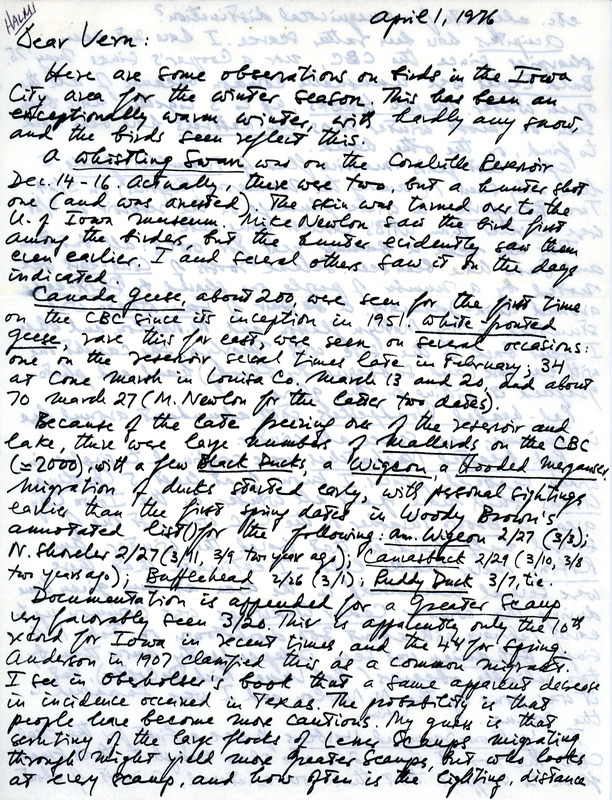 HALMI
April 1, 1976
Dear Vern:
Here are some observations on birds in the Iowa
City area for the winter season. This has been an
exceptionally warm winter, with hardly any snow,
and the birds seen reflect this.
A Whistling Swan was on the Coralville Reservoir
Dec. 14-16. Actually, there were two, but a hunter shot
one (and was arrested). The skin was turned over to the
U. of Iowa museum. Mike Newlon saw the bird first
among the birders, but the hunter evidently saw them
even earlier. I and several others saw it on the days
indicated.
Canada Geese, about 200, were seen for the first time
on the CBC since its inception in 1951. White-fronted
geese, rare this far east, were seen on several occasions:
one on the reservoir several times late in February; 34
at Cone Marsh in Louisa Co. March 13 and 20, and about
70 March 27 (M. Newlon for the latter two dates).
Because of the late freezing over of the reservoir and
lake, there were large numbers of Mallards on the CBC
(≃2000), with a few Black Ducks, a Wigeon, a Hooded Merganser.
Migration of ducks started early, with personal sightings
earlier than the first spring dates in Woody Brown's
annotated list() for the following: Am. Wigeon 2/27 (3/3);
N. Shoveler 2/27 (3/11, 3/9 two year ago); Canvasback 2/29 (3/10, 3/8
two years ago); Bufflehead 2/26 (3/1); Ruddy Duck 3/7, tie.
Documentation is appended for a Greater Scaup
very favorably seen 3/20. This is apparently only the 10th
record for Iowa in recent times, and the 4th for spring.
Anderson in 1907 classified this as a common migrant.
I see in Oberholser's book that a same apparent decrease
in incidence occurred in Texas. The probability is that
people have become more cautious. My guess is that
scrutiny of the large flocks of Lesser Scaups migrating
through might yield more Greater Scaups, but who looks
at every scaup, and how often is the lighting, distance